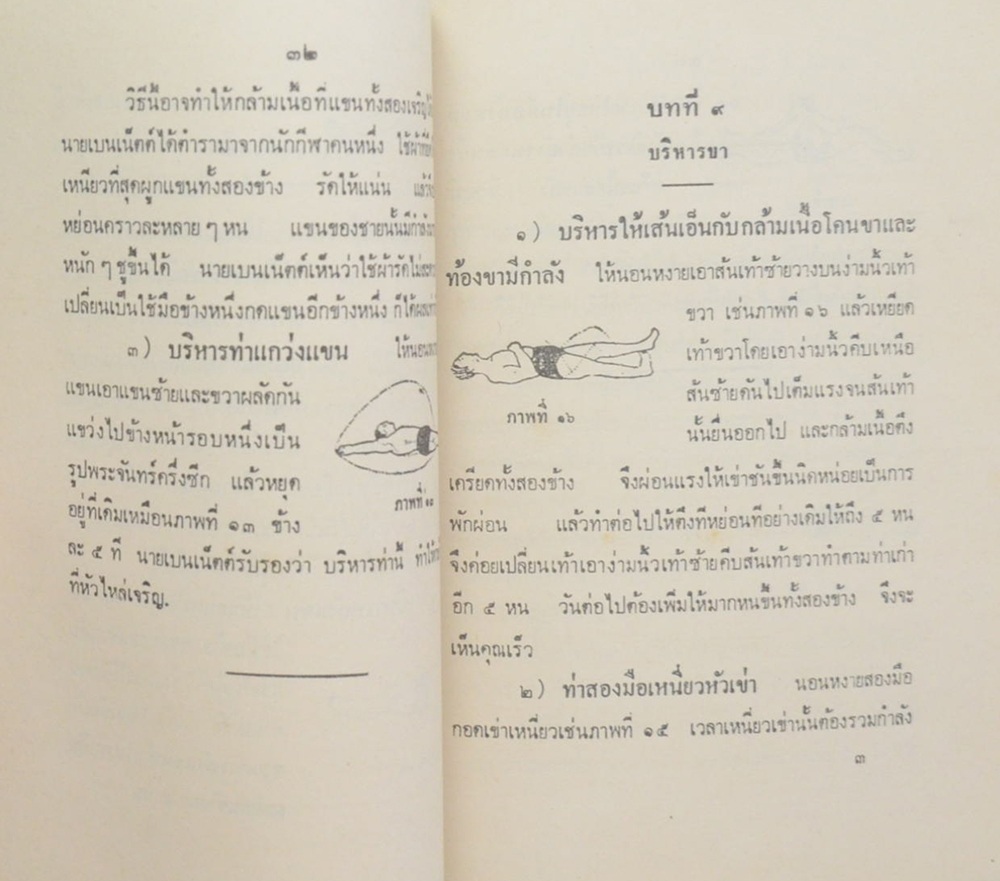 ๓๒
วิธีนี้อาจทำให้กล้ามเนื้อที่แขนทั้งสองเจริญ
นายเบนเน็ตต์ได้ตำรามาจากนักกีฬาคนหนึ่ง ใช้ผ้า
เหนียวที่สุดผูกแขนทั้งสองข้าง รัดให้แน่น
หย่อนคราวละหลาย ๆ หน แขนของชายนั้นมีกำลัง
หนัก ๆ ชูขึ้นได้ นายเบนเน็ตต์เห็นว่าใช้ผ้ารัดไม่
เปลี่ยนเป็นใช้มือข้างหนึ่งกดแขนอีกข้างหนึ่ง ก็ได้ผล
๓) บริหารท่าแกว่งแขน ให้นอน
แขนเอาแขนซ้ายและขวาผลัดกัน
แขว่งไปข้างหน้ารอบหนึ่งเป็น
รูปพระจันทร์ครึ่งซีก แล้วหยุด
อยู่ที่เดิมเหมือนภาพที่ ๑๓ ข้าง
ภาพที่
ละ ๕ ที นายเบนเน็ตต์รับรองว่า บริหารท่านี้
ที่หัวไหล่เจริญ.
บทที่ ๙
บริหารขา
๑) บริหารให้เส้นเอ็นกับกล้ามเนื้อโคนขาและ
ท้องขามีกำลัง ให้นอนหงายเอาส้นเท้าซ้ายวางบนง่ามนิ้วเท้า
ขวา เช่นภาพที่ ๑๖ แล้วเหยียด
เท้าขวาโดยเอาง่ามนิ้วคีบเหนือ
ส้นซ้ายดันไปเต็มแรงจนส้นเท้า
นั้นยื่นออกไป และกล้ามเนื้อตึง
ภาพที่ ๑๖
เครียดทั้งสองข้าง จึงผ่อนแรงให้เข่าชันขึ้นนิดหน่อยเป็นการ
พักผ่อน แล้วทำต่อไปให้ตึงทีหย่อนทีอย่างเดิมให้ถึง ๕ หน
จึงค่อยเปลี่ยนเท้าเอาง่ามนิ้วเท้าซ้ายคีบส้นเท้าขวาทำตามท่าเก่า
อีก ๕ หน วันต่อไปต้องเพิ่มให้มากหนขึ้นทั้งสองข้าง จึงจะ
เห็นคุณเร็ว
๒) ท่าสองมือเหนี่ยวหัวเข่า นอนหงายสองมือ
กอดเข่าเหนี่ยวเช่นภาพที่ ๑๕ เวลาเหนี่ยวเข่านั้นต้องรวมกำลัง
๓